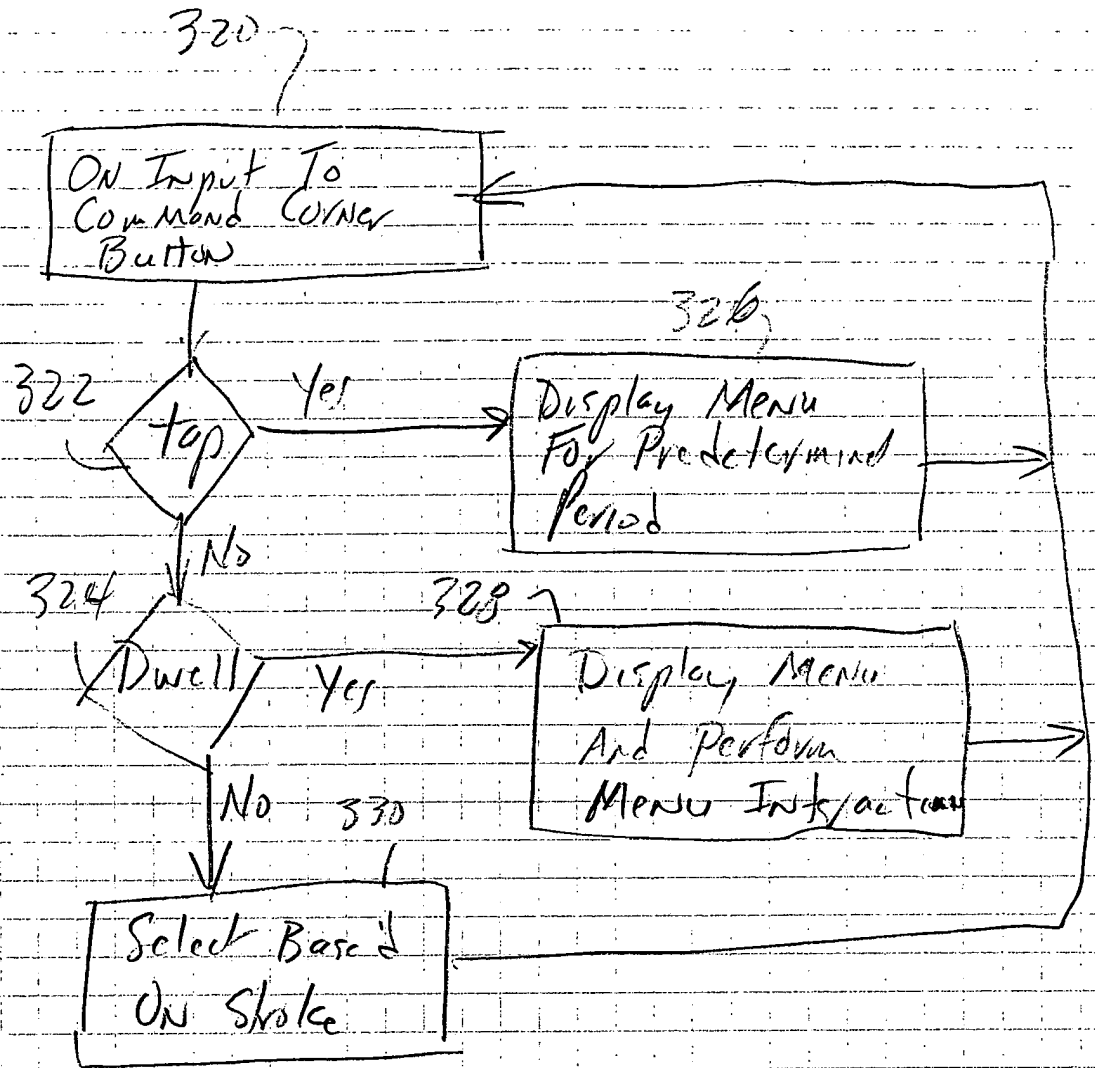 320
On Input To
Command Corner
Button
322
tap
Yes
326
Display Menu
For Predetermind
Period
No
324
Dwell
Yes
328
Display Menu
And Perform
Menu Interaction
No
330
Select Based
On Stroke